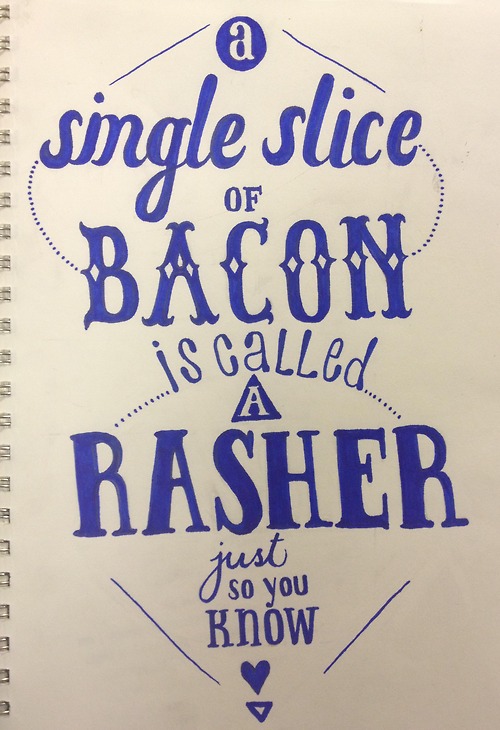 a
single slice
OF
BACON
is called
A
RASHER
just
so you
KNOW